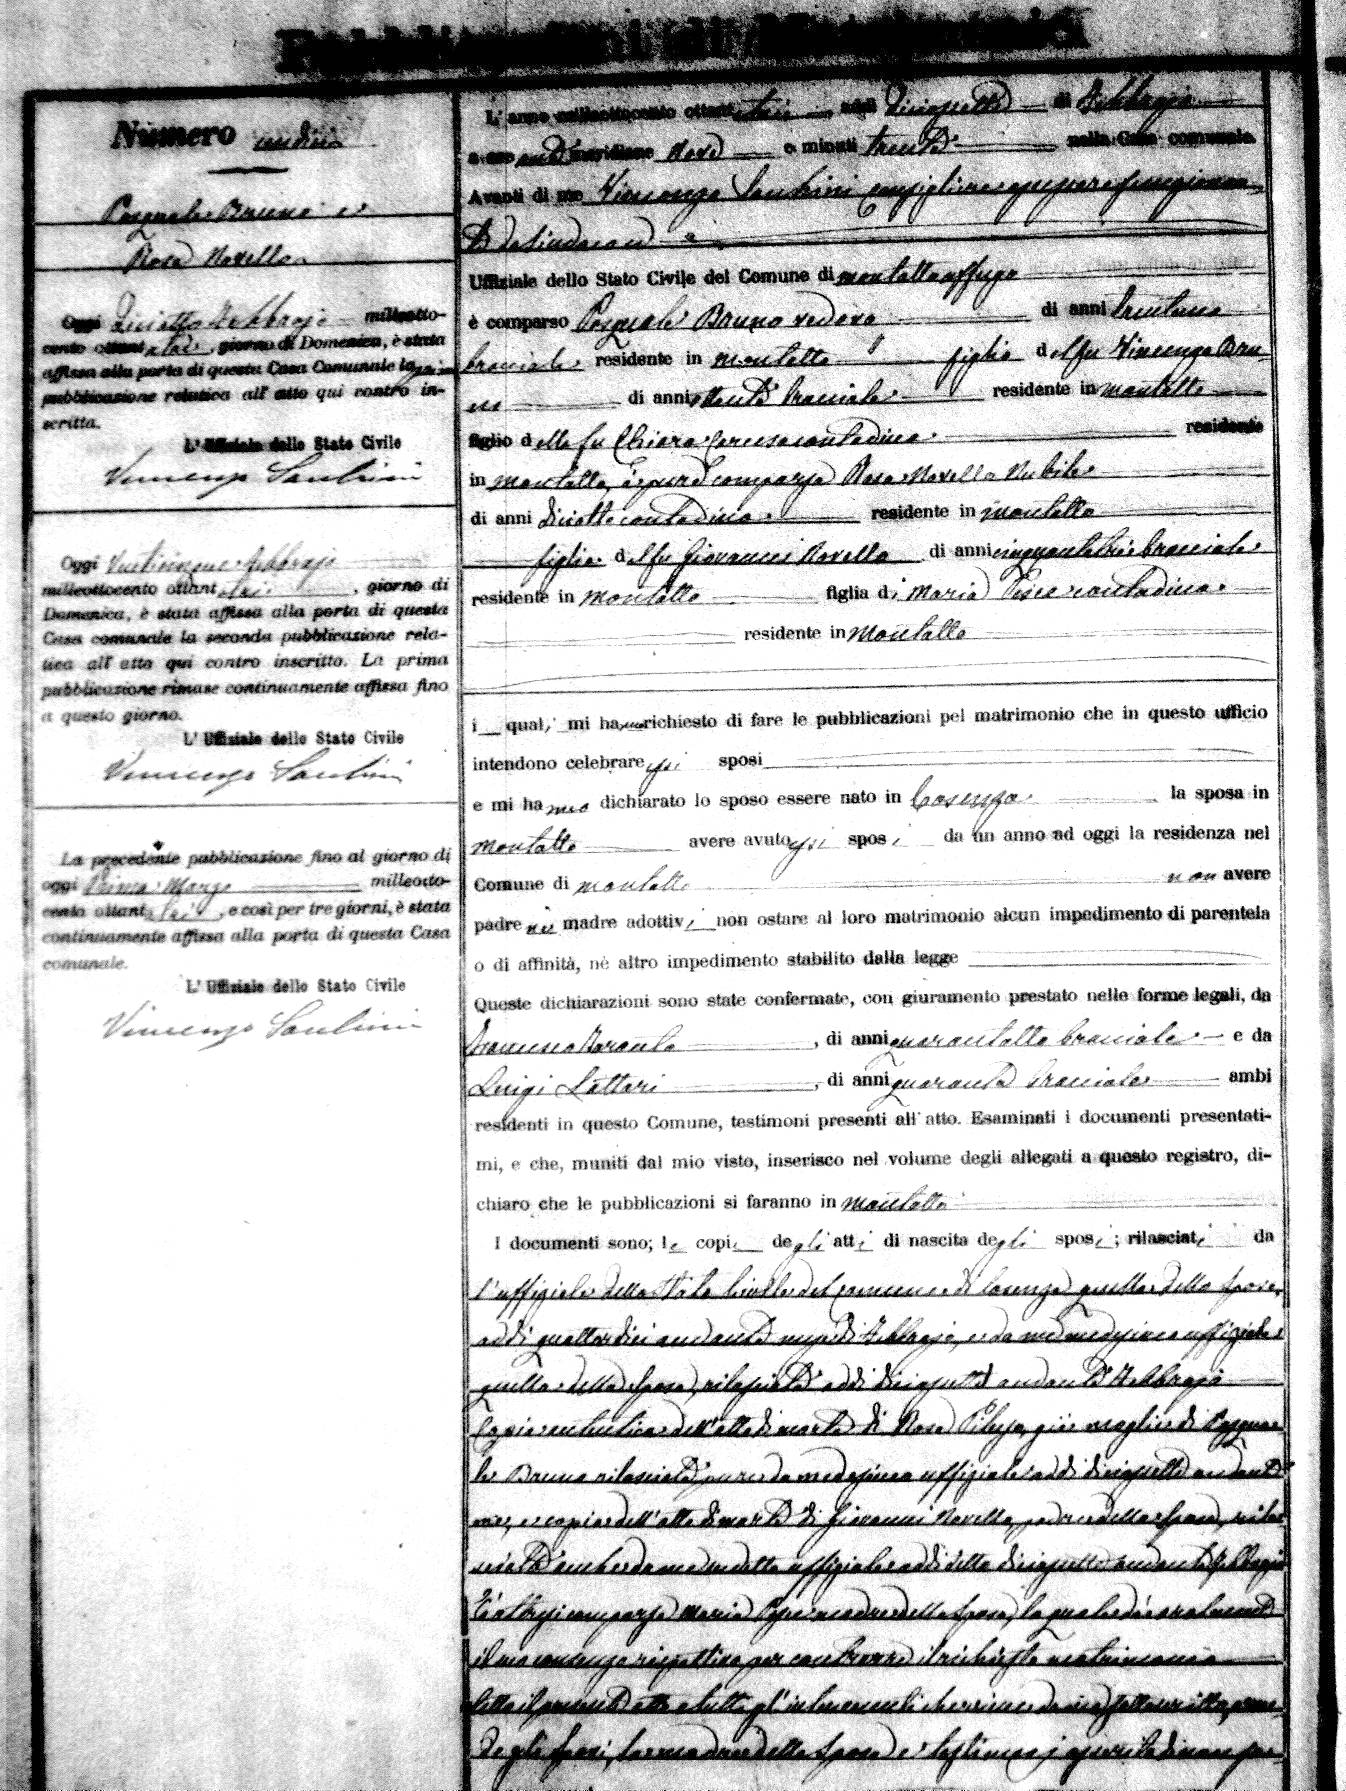 Pubblicazioni di Matrimonio
Numero undici
Pasquale Bruno e
Rosa Novello
Oggi Diciotto Febbrajo milleotto-
cento ottanta , giorno di Domenica, è stata
affissa alla porta di questa Casa Comunale la
pubblicazione relativa all' atto qui contro in-
scritta.
L' Uffiziale dello Stato Civile
Vincenzo Santrini
Oggi Venticinque Febbrajo
milleottocento ottantatrè , giorno di
Domenica, è stata affissa alla porta di questa
Casa comunale la seconda pubblicazione rela-
tiva all' atto qui contro inscritto. La prima
pubblicazione rimase continuamente affissa fino
a questo giorno.
L' Uffiziale dello Stato Civile
Vincenzo
La precedente pubblicazione fino al giorno di
oggi Primo Marzo milleotto-
cento ottantatrè , e così per tre giorni, è stata
continuamente affissa alla porta di questa Casa
comunale.
L' Uffiziale dello Stato Civile
Vincenzo
L' anno milleottocento ottantatrè , addì diciasette di Febbrajo
a ore anti meridiane Nove e minuti trenta nella Casa comunale.
Avanti di me Vincenzo consigliere
Uffiziale dello Stato Civile del Comune di montaltouffugo
è comparso Pasquale Bruno vedovo di anni
bracciale residente in montalto figlio del fu Vincenzo Bru
no di anni bracciale residente in montalto
figlio della fu Chiara Caruso contadina residente
in montalto, è pure comparsa Rosa Novello Nubile
di anni diciotto contadina residente in montalto
figlia del fu Giovanni Novello di anni cinquantatrè bracciale
residente in montalto figlia di Maria Pesce contadina
residente in montalto
i quali mi hanno richiesto di fare le pubblicazioni pel matrimonio che in questo ufficio
intendono celebrare essi sposi
e mi hanno dichiarato lo sposo essere nato in Cosenza la sposa in
montalto avere avuto essi sposi da un anno ad oggi la residenza nel
Comune di montalto non avere
padre nè madre adottivi non ostare al loro matrimonio alcun impedimento di parentela
o di affinità, nè altro impedimento stabilito dalla legge
Queste dichiarazioni sono state confermate, con giuramento prestato nelle forme legali, da
Francesco , di anni quarantotto bracciale e da
Luigi Lattari , di anni quaranta bracciale ambi
residenti in questo Comune, testimoni presenti all' atto. Esaminati i documenti presentati-
mi, e che, muniti dal mio visto, inserisco nel volume degli allegati a questo registro, di-
chiaro che le pubblicazioni si faranno in montalto
I documenti sono; le copie degli atti di nascita degli sposi; rilasciati da
l'uffiziale dello Stato Civile del comune di Cosenza quella dello sposo,
addì quattordici andante mese di Febbrajo, e da me medesimo uffiziale
quella della sposa, rilasciata addì diciasette andante Febbrajo
Copia autentica dell'atto di morte di Rosa già moglie di Pasqua
le Bruno rilasciata pure da me medesimo uffiziale addì diciasette andante
me, e copia dell'atto di morte di Giovanni Novello, padre della sposa, rila
sciata anche da me uffiziale addì detto diciasette andante Febbrajo
È altresì comparsa Maria Pesce madre della sposa, la quale dà oralmente
il suo consenso rispettivo per contrarre il richiesto matrimonio
Letto il presente atto a tutti gl'intervenuti viene da me sottoscritto,
degli sposi, la madre della sposa e testimoni di non